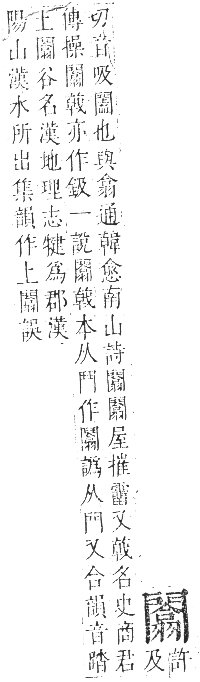 闟
許
及
切音吸闔也與翕通韓愈南山詩闟闟屋摧霤又戟名史商君
傳操闟戟亦作鈒一說闟戟本从鬥作闟譌从門又合韻音踏
上闟谷名漢地理志犍爲郡漢
陽山漢水所出集韻作上闟誤